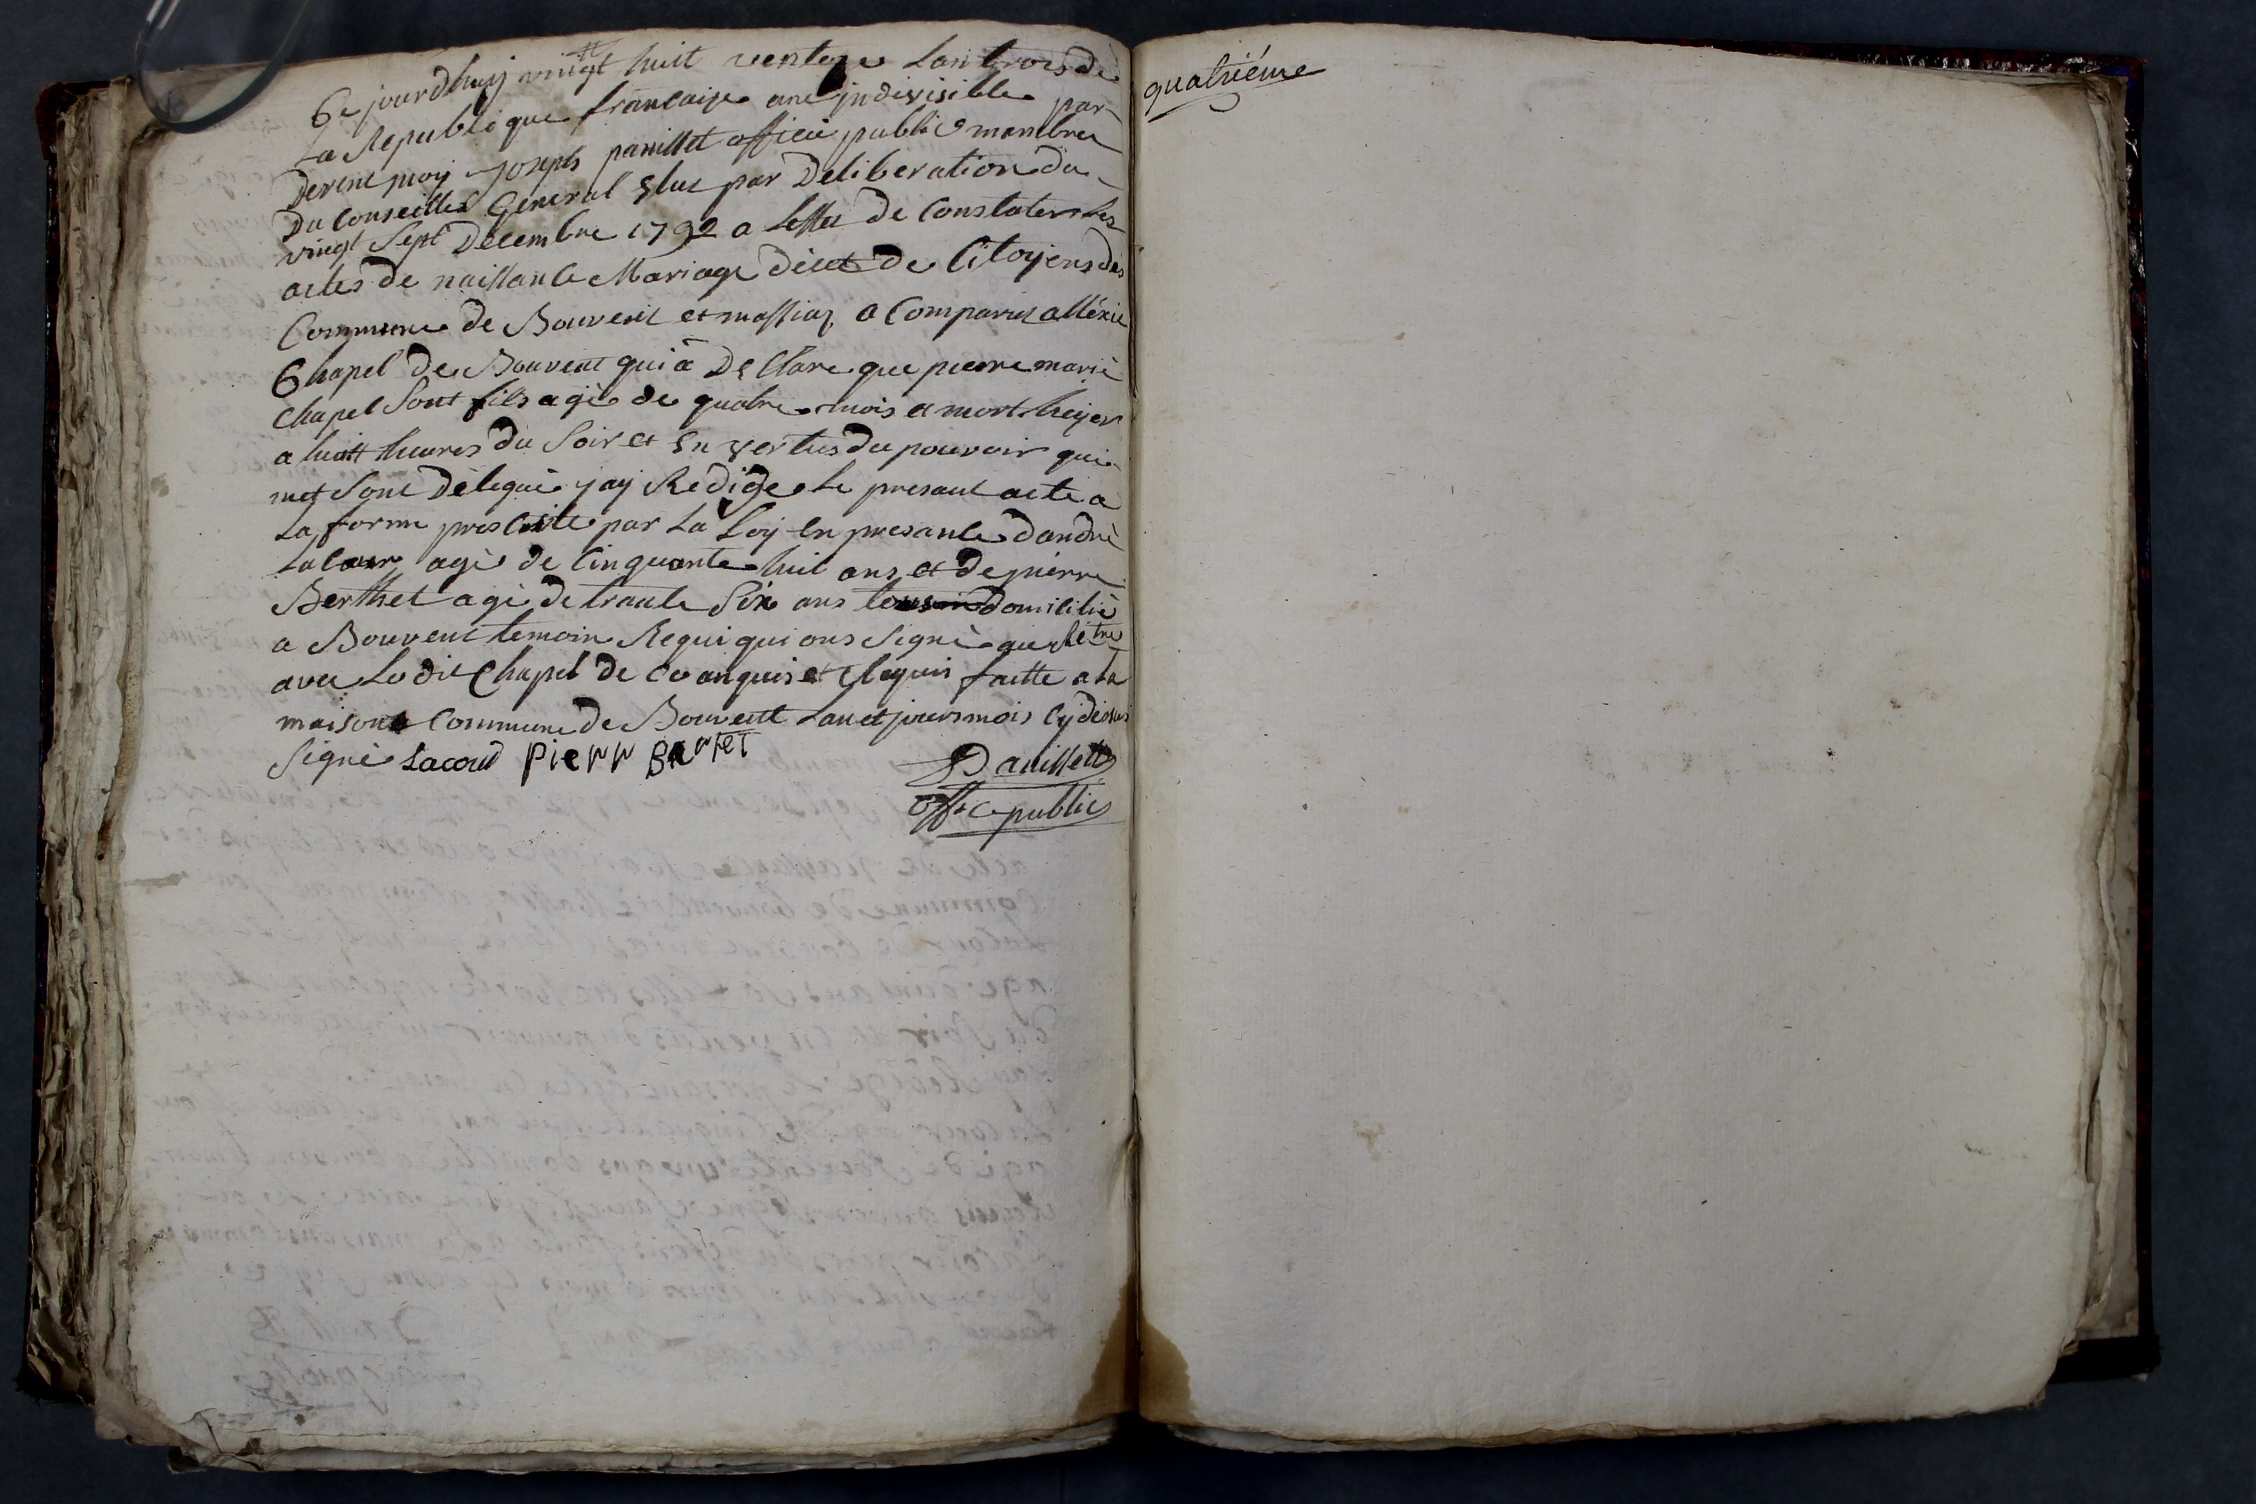 Ce jourd'huy vingt huit ventose Lan trois de
La Republique francaise une jndivisible par
devent moy joseph panillet officié public manbre
Du Conseille General Elut par Deliberation du
vingt Sept Decembre 1792 a Leffet de Constater Les
actes de naissance Mariage décet de Citoyens des
Commune de Bouvent et massiaz a Comparut
Chapel de Bouvent qui à Declare que pierre marie
Chapel Sont fils agé de quatre mois et mort heyer
a huitt heures du Soir et En vertus du pouvoir qui
met Sont Délegué jay Redigé Le presant acte a
La forme prescrite par La Loy En presance dandré
Lacour agé de Cinquante huit ans et de pierre
Berthet agé de trante Six ans domicilié
a Bouvent temoin Requi qui ons Signé
avec Ledit Chapel de Ce anquis et Requis faitte a la
maison Commune de Bouvent Lan et jours mois Cy dessus
Signé Lacour Pierr Bertet
Panillett
Offic public
quatriéme